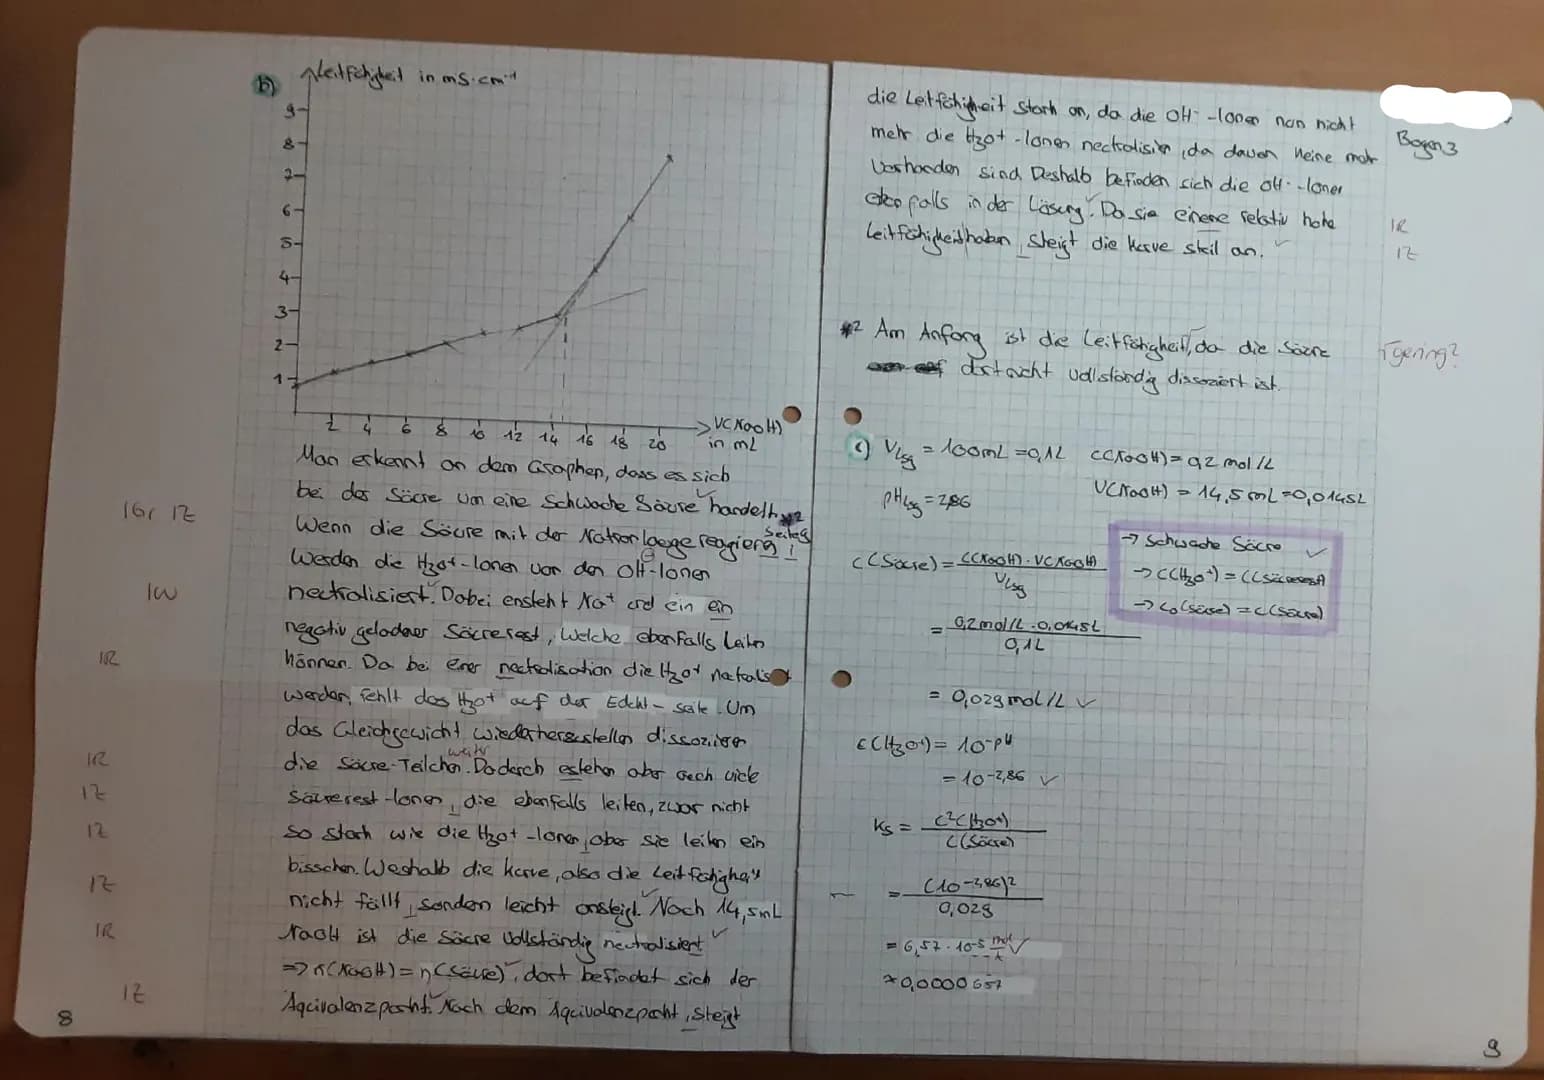 b)
Leitfähigkeit in mS·cm⁻¹
9
8
7
6
5
4
3
2
1
2 4 6 8 10 12 14 16 18 20
V(NaOH)
in mL
Man erkennt an dem Graphen, dass es sich
bei der Säure um eine schwache Säure handelt. *2
Seite 9
1Gr 1Z
Wenn die Säure mit der Natronlauge reagiert,
werden die H₃O⁺-Ionen von den OH⁻-Ionen
1W
neutralisiert. Dabei ensteht Na⁺ und ein ein
negativ geladener Säurerest, welche ebenfalls leiten
1R
können. Da bei einer neutralisation die H₃O⁺ neutralisiert
werden, fehlt das H₃O⁺ auf der Edukt-seite. Um
das Gleichgewicht wiederherzustellen dissoziieren
weiter
1R
die Säure-Teilchen. Dadurch estehen aber auch viele
1Z
Säurerest-Ionen, die ebenfalls leiten, zwar nicht
1Z
so stark wie die H₃O⁺-Ionen, aber sie leiten ein
bisschen. Weshalb die Kurve, also die Leitfähigkeit
1Z
nicht fällt, sondern leicht ansteigt. Nach 14,5mL
1R
NaOH ist die Säure vollständig neutralisiert
=> n(NaOH) = n(Säure), dort befindet sich der
1Z
Äquivalenzpunkt. Nach dem Äquivalenzpunkt, steigt
8
die Leitfähigkeit stark an, da die OH⁻-Ionen nun nicht
Bogen 3
mehr die H₃O⁺-Ionen neutralisieren, da davon keine mehr
vorhanden sind. Deshalb befinden sich die OH⁻-Ionen
ebenfalls in der Lösung. Da sie einene relativ hohe
1R
Leitfähigkeit haben, steigt die Kurve steil an.
1Z
*2 Am Anfang ist die Leitfähigkeit, da die Säure
Γgering?
dort nicht vollständig dissoziiert ist.
c) V_Lsg = 100mL = 0,1L c(NaOH) = 0,2 mol/L
pH_Lsg = 2,86 V(NaOH) = 14,5mL = 0,0145L
→ Schwache Säure
→ c(H₃O⁺) = c(Säurerest)
→ c₀(Säure) = c(Säure)
c(Säure) = c(NaOH) · V(NaOH)
V_Lsg
= 0,2mol/L · 0,0145L
0,1L
= 0,029 mol/L
c(H₃O⁺) = 10^-pH
= 10^-2,86
Ks = c²(H₃O⁺)
c(Säure)
= (10^-2,86)²
0,029
= 6,57 · 10⁻⁵ mol
≈ 0,0000657
9